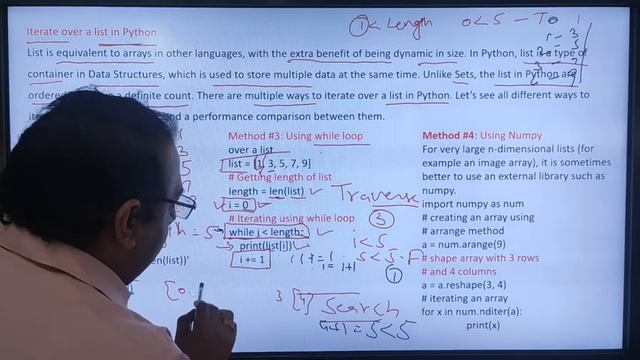 Iterate over a list in Python
List is equivalent to arrays in other languages, with the extra benefit of being dynamic in size. In Python, list is a type of
container in Data Structures, which is used to store multiple data at the same time. Unlike Sets, the list in Python are
ordered a definite count. There are multiple ways to iterate over a list in Python. Let's see all different ways to
and a performance comparison between them.
1 < Length 0 < 5 - T
Method #3: Using while loop
over a list
list = [1, 3, 5, 7, 9]
# Getting length of list
length = len(list)
i = 0
# Iterating using while loop
while i < length:
print(list[i])
i += 1
Traverse
3
i < 5
5 < 5 - F
1
i = i+1
3 [4] Search
5 < 5
= 5
en(list))'
[0.
Method #4: Using Numpy
For very large n-dimensional lists (for
example an image array), it is sometimes
better to use an external library such as
numpy.
import numpy as num
# creating an array using
# arrange method
a = num.arange(9)
# shape array with 3 rows
# and 4 columns
a = a.reshape(3, 4)
# iterating an array
for x in num.nditer(a):
print(x)